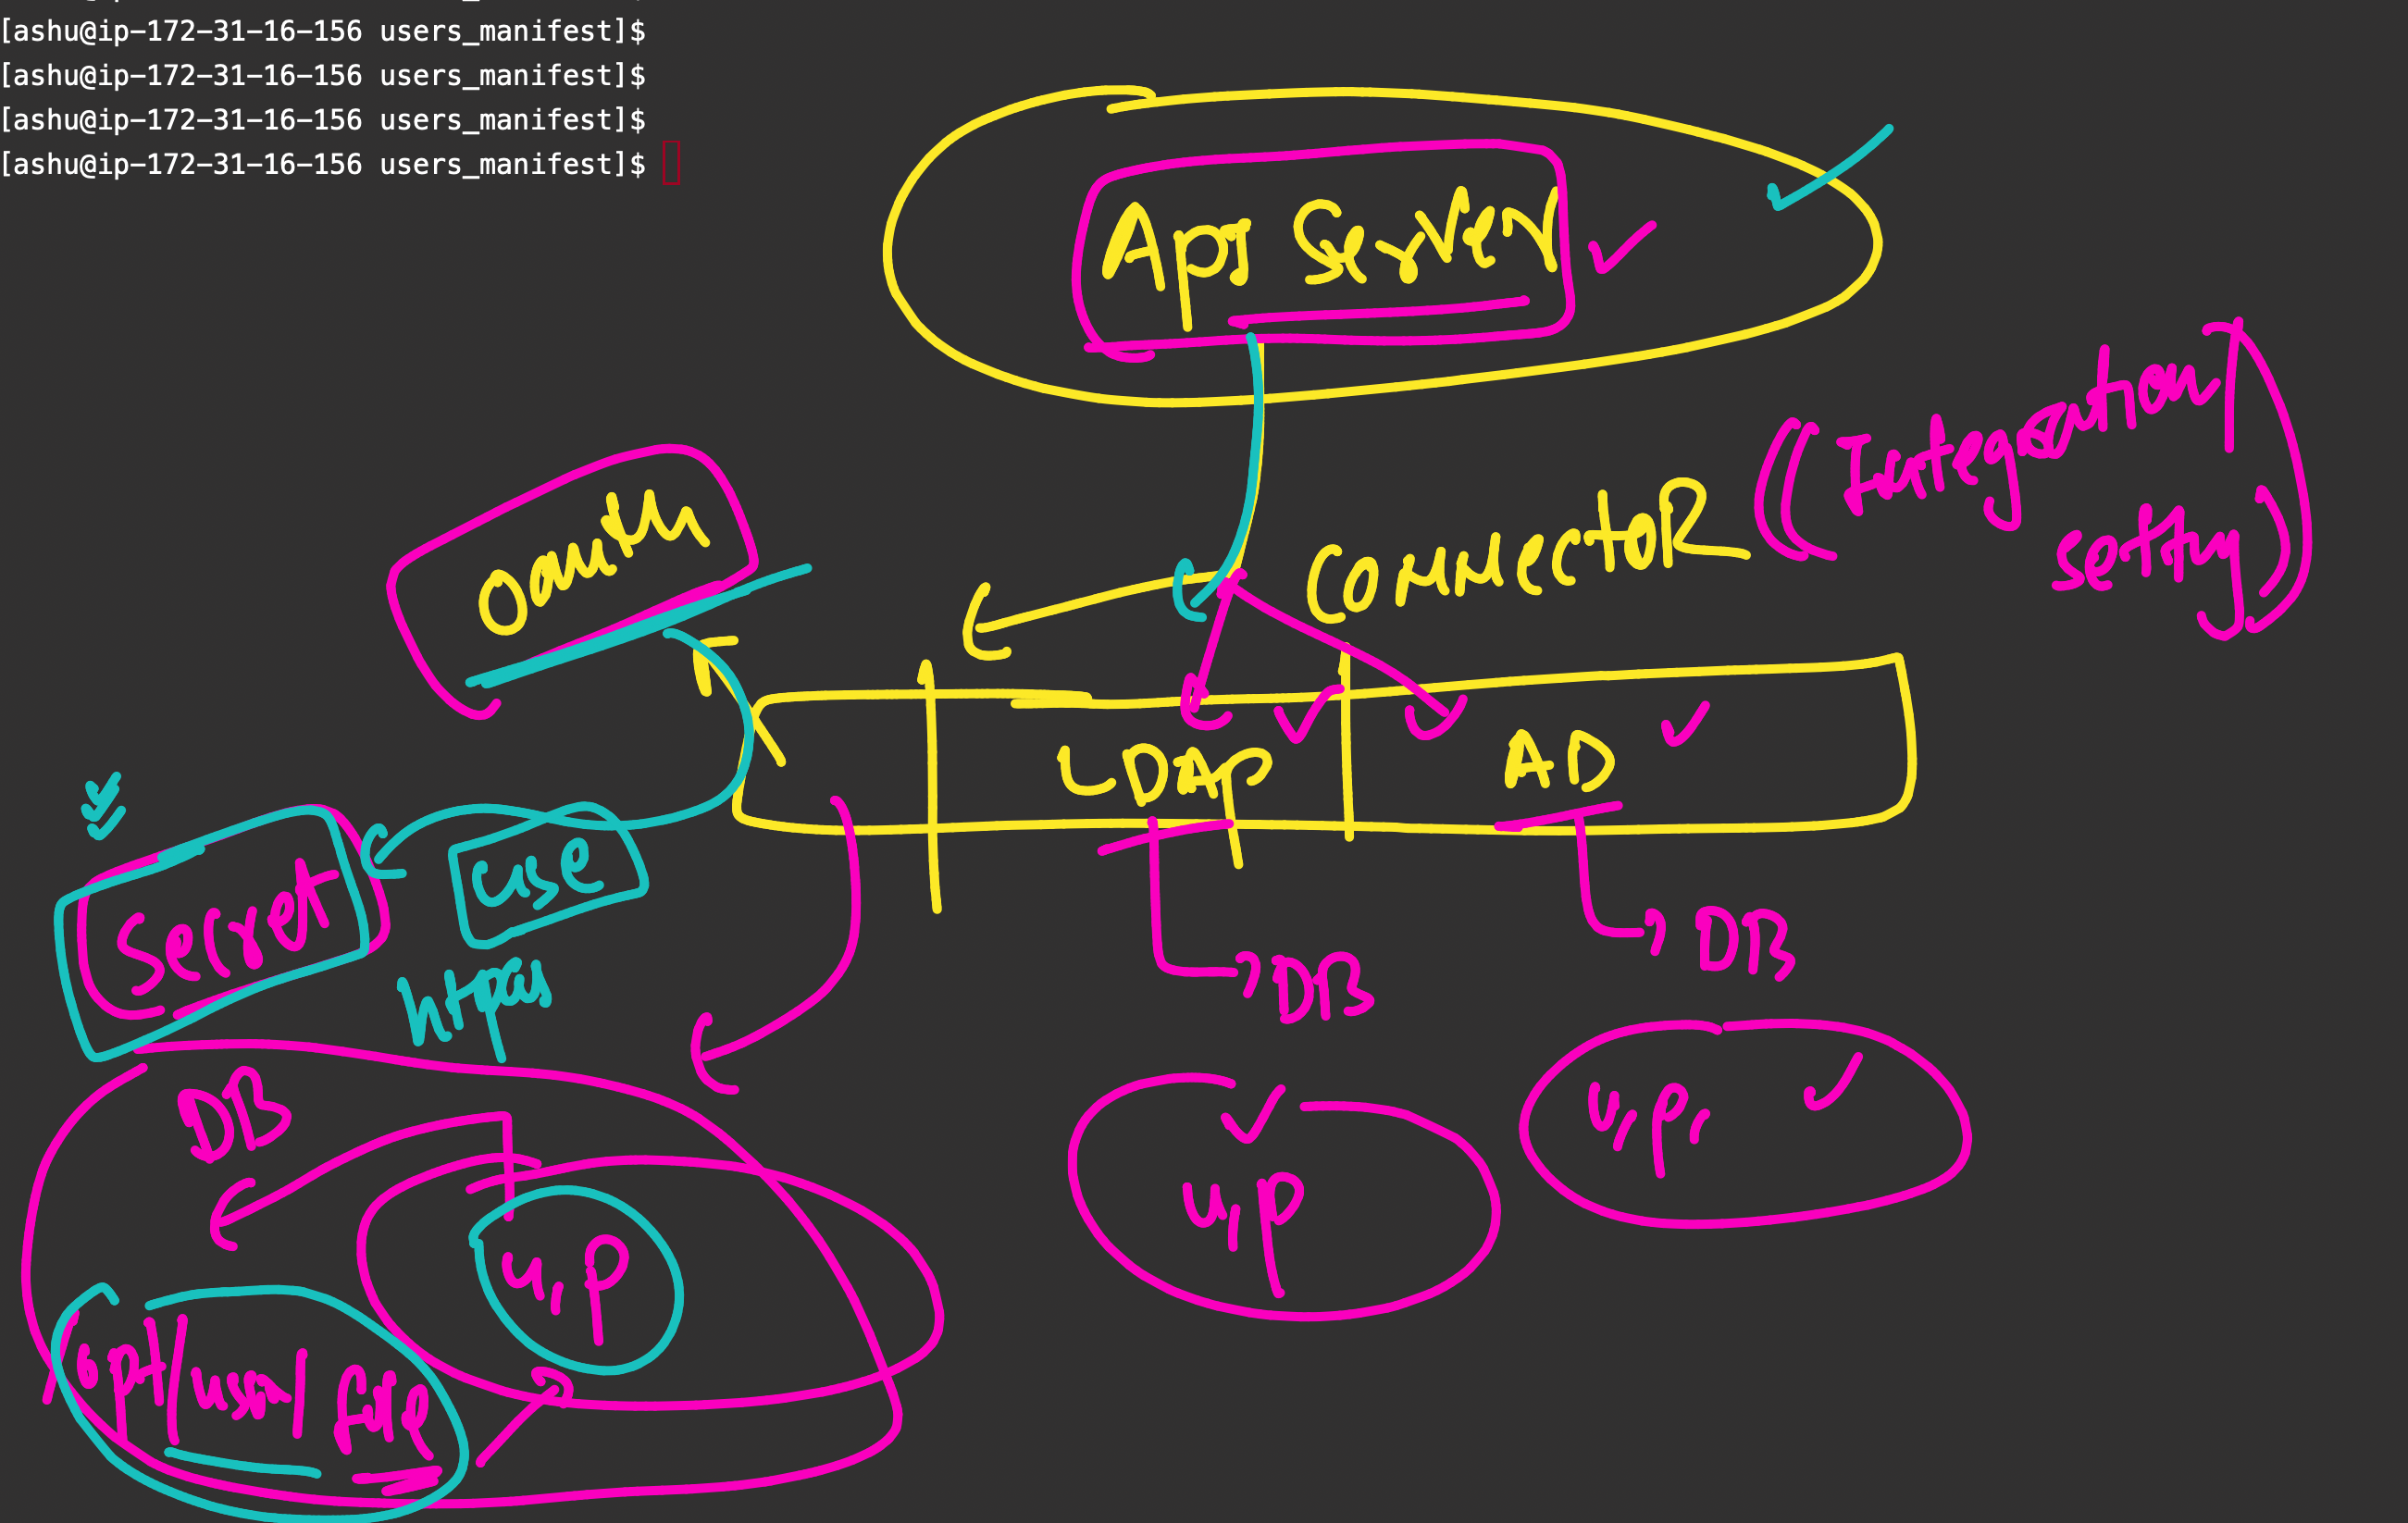 [ashu@ip-172-31-16-156 users_manifest]$
[ashu@ip-172-31-16-156 users_manifest]$
[ashu@ip-172-31-16-156 users_manifest]$
[ashu@ip-172-31-16-156 users_manifest]$
App Server
ConnectoR
(Integration
setting)
Oauth
LDAP
AD
use
Secret
DB
DB
htpas
DB
u,p,
u,p
u,p
opt/user/file